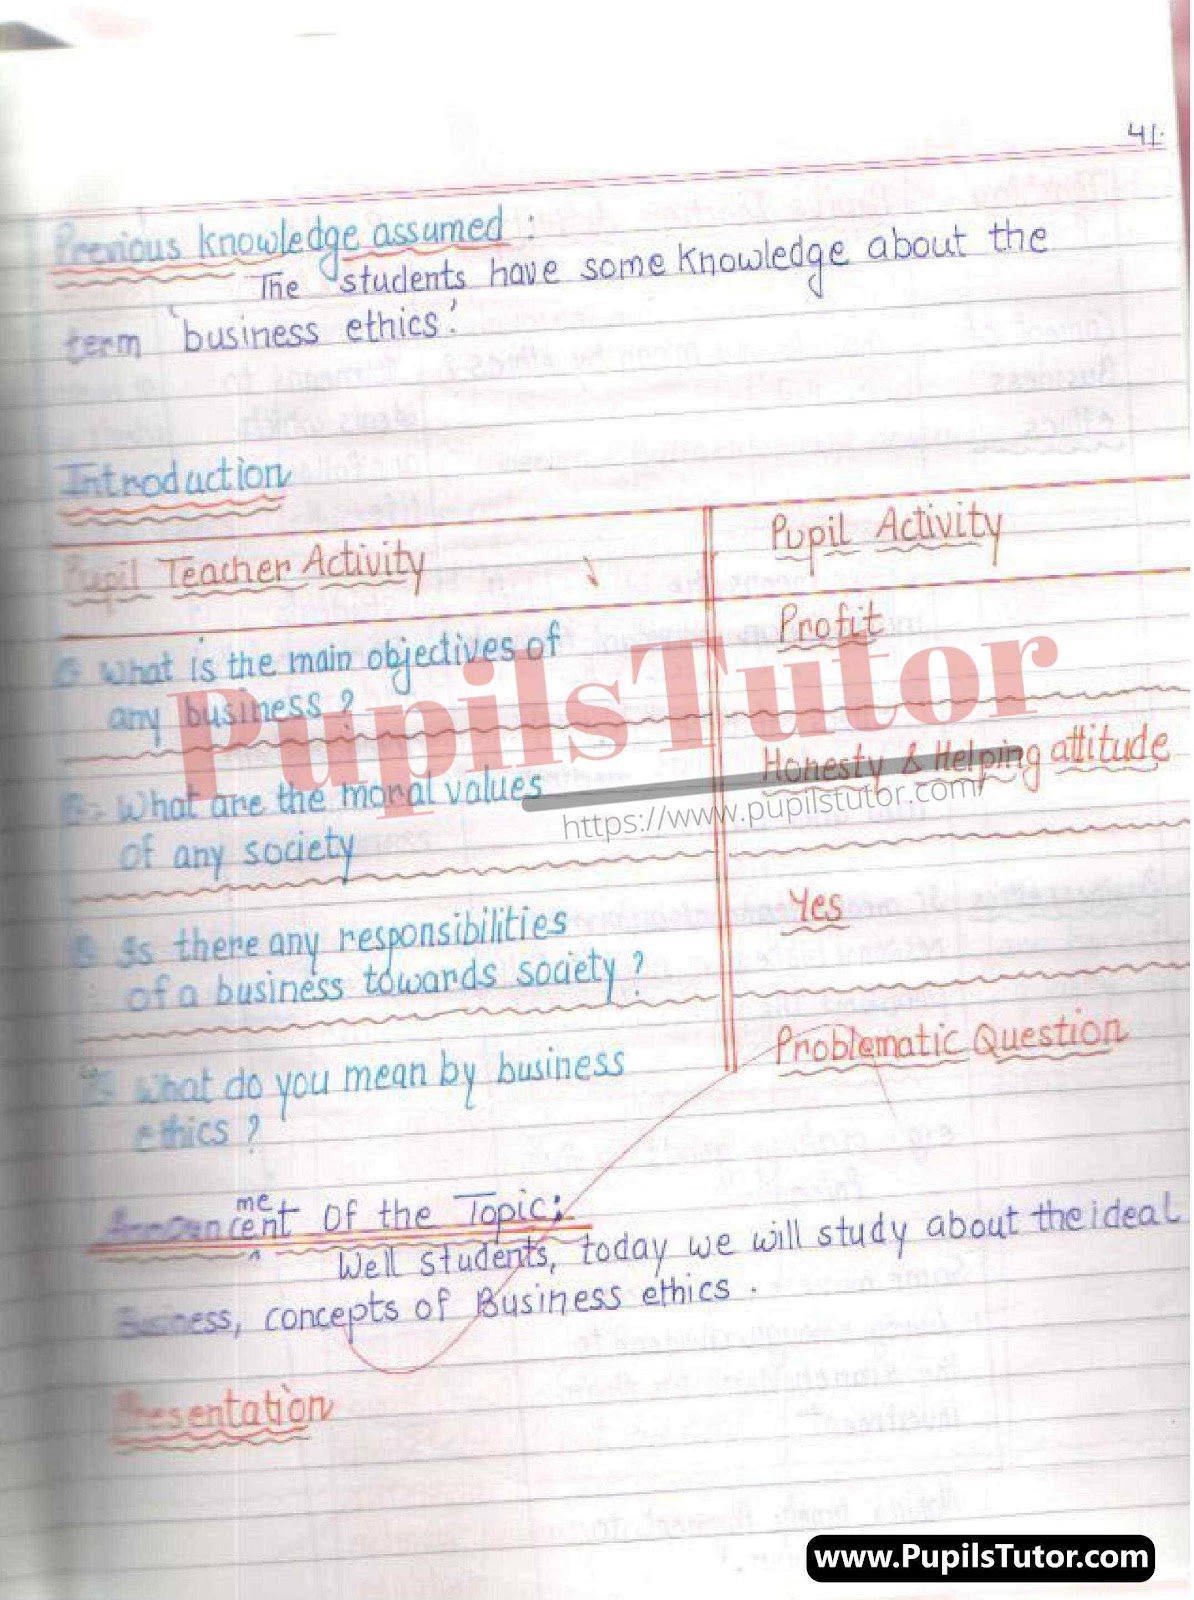 41.
Previous knowledge assumed :
The students have some knowledge about the
term 'business ethics.'
Introduction
Pupil Teacher Activity
Pupil Activity
What is the main objectives of
any business ?
Profit
What are the moral values
of any society
Honesty & Helping attitude
Is there any responsibilities
of a business towards society ?
Yes
What do you mean by business
ethics ?
Problematic Question
me
Announcent Of the Topic:
Well students, today we will study about the ideal
Business, concepts of Business ethics .
Presentation
PupilsTutor
https://www.pupilstutor.com/
www.PupilsTutor.com